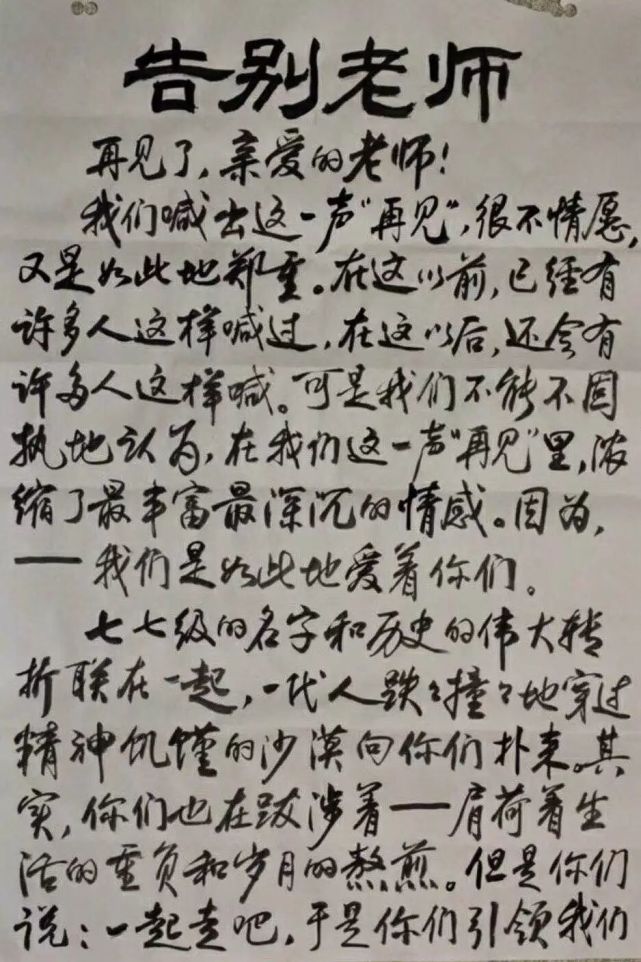 告别老师
再见了，亲爱的老师！
我们喊出这一声“再见”，很不情愿，
又是如此地郑重。在这以前，已经有
许多人这样喊过，在这以后，还会有
许多人这样喊。可是我们不能不固
执地认为，在我们这一声“再见”里，浓
缩了最丰富最深沉的情感。因为，
——我们是如此地爱着你们。
七七级的名字和历史的伟大转
折联在一起，一代人跌々撞々地穿过
精神饥馑的沙漠向你们扑来。其
实，你们也在跋涉着——肩荷着生
活的重负和岁月的熬煎。但是你们
说：一起走吧，于是你们引领我们